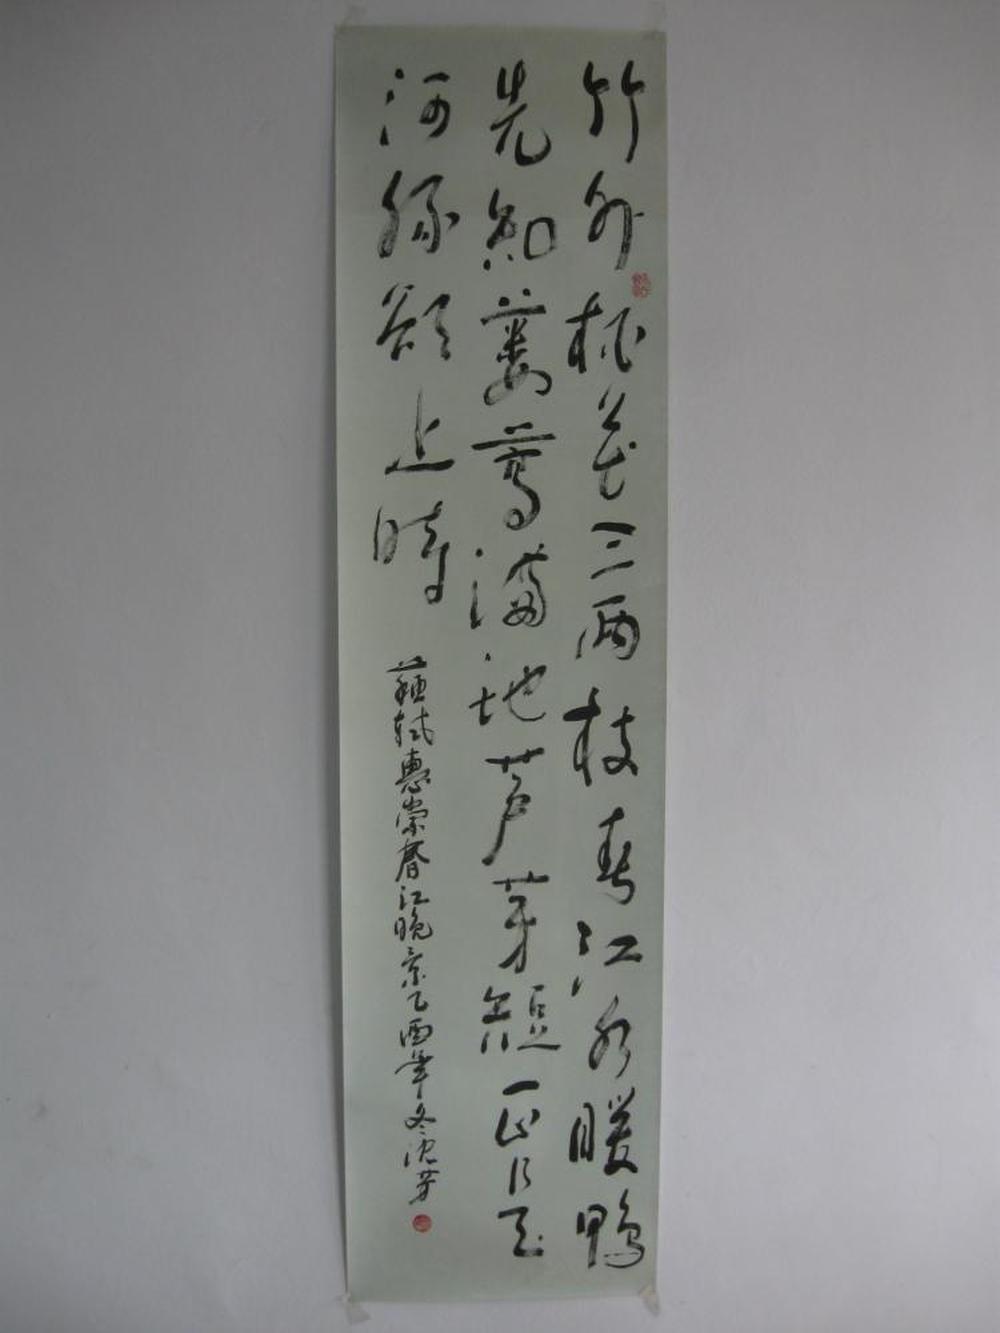 竹外桃花三两枝春江水暖鴨
先知蔞蒿滿地芦芽短正是
河豚欲上時
蘇軾惠崇春江晚景乙酉年冬沈芳